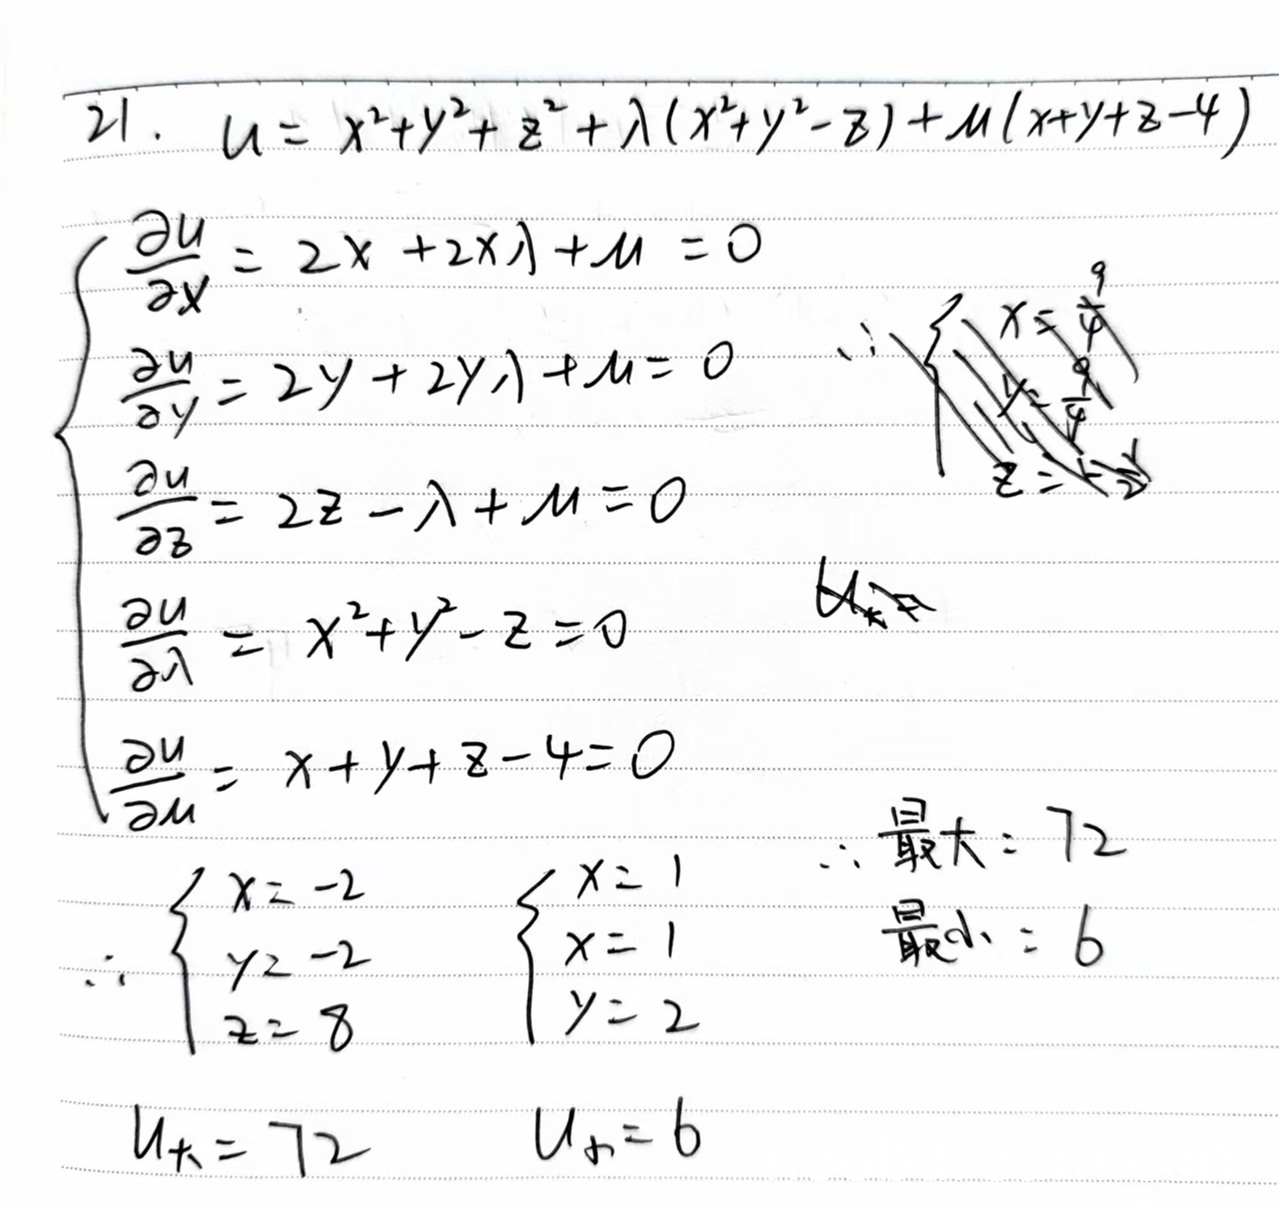 21. u = x²+y²+z²+λ(x²+y²-z)+μ(x+y+z-4)
∂u/∂x = 2x+2xλ+μ=0
∂u/∂y = 2y+2yλ+μ=0
∂u/∂z = 2z-λ+μ=0
∂u/∂λ = x²+y²-z=0
∂u/∂μ = x+y+z-4=0
∴ { x=-2
y=-2
z=8
{ x=1
x=1
y=2
u大=72
u小=6
∴最大:72
最小:6